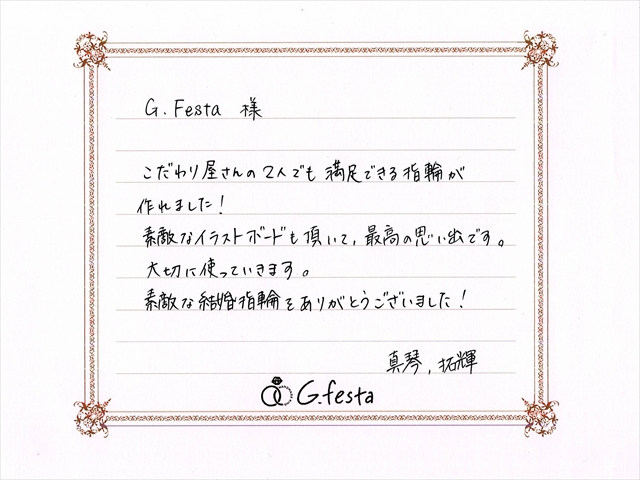 G.Festa 様
こだわり屋さんの2人でも満足できる指輪が
作れました!
素敵なイラストボードも頂いて、最高の思い出です。
大切に使っていきます。
素敵な結婚指輪をありがとうございました!
真琴,拓輝
G.festa